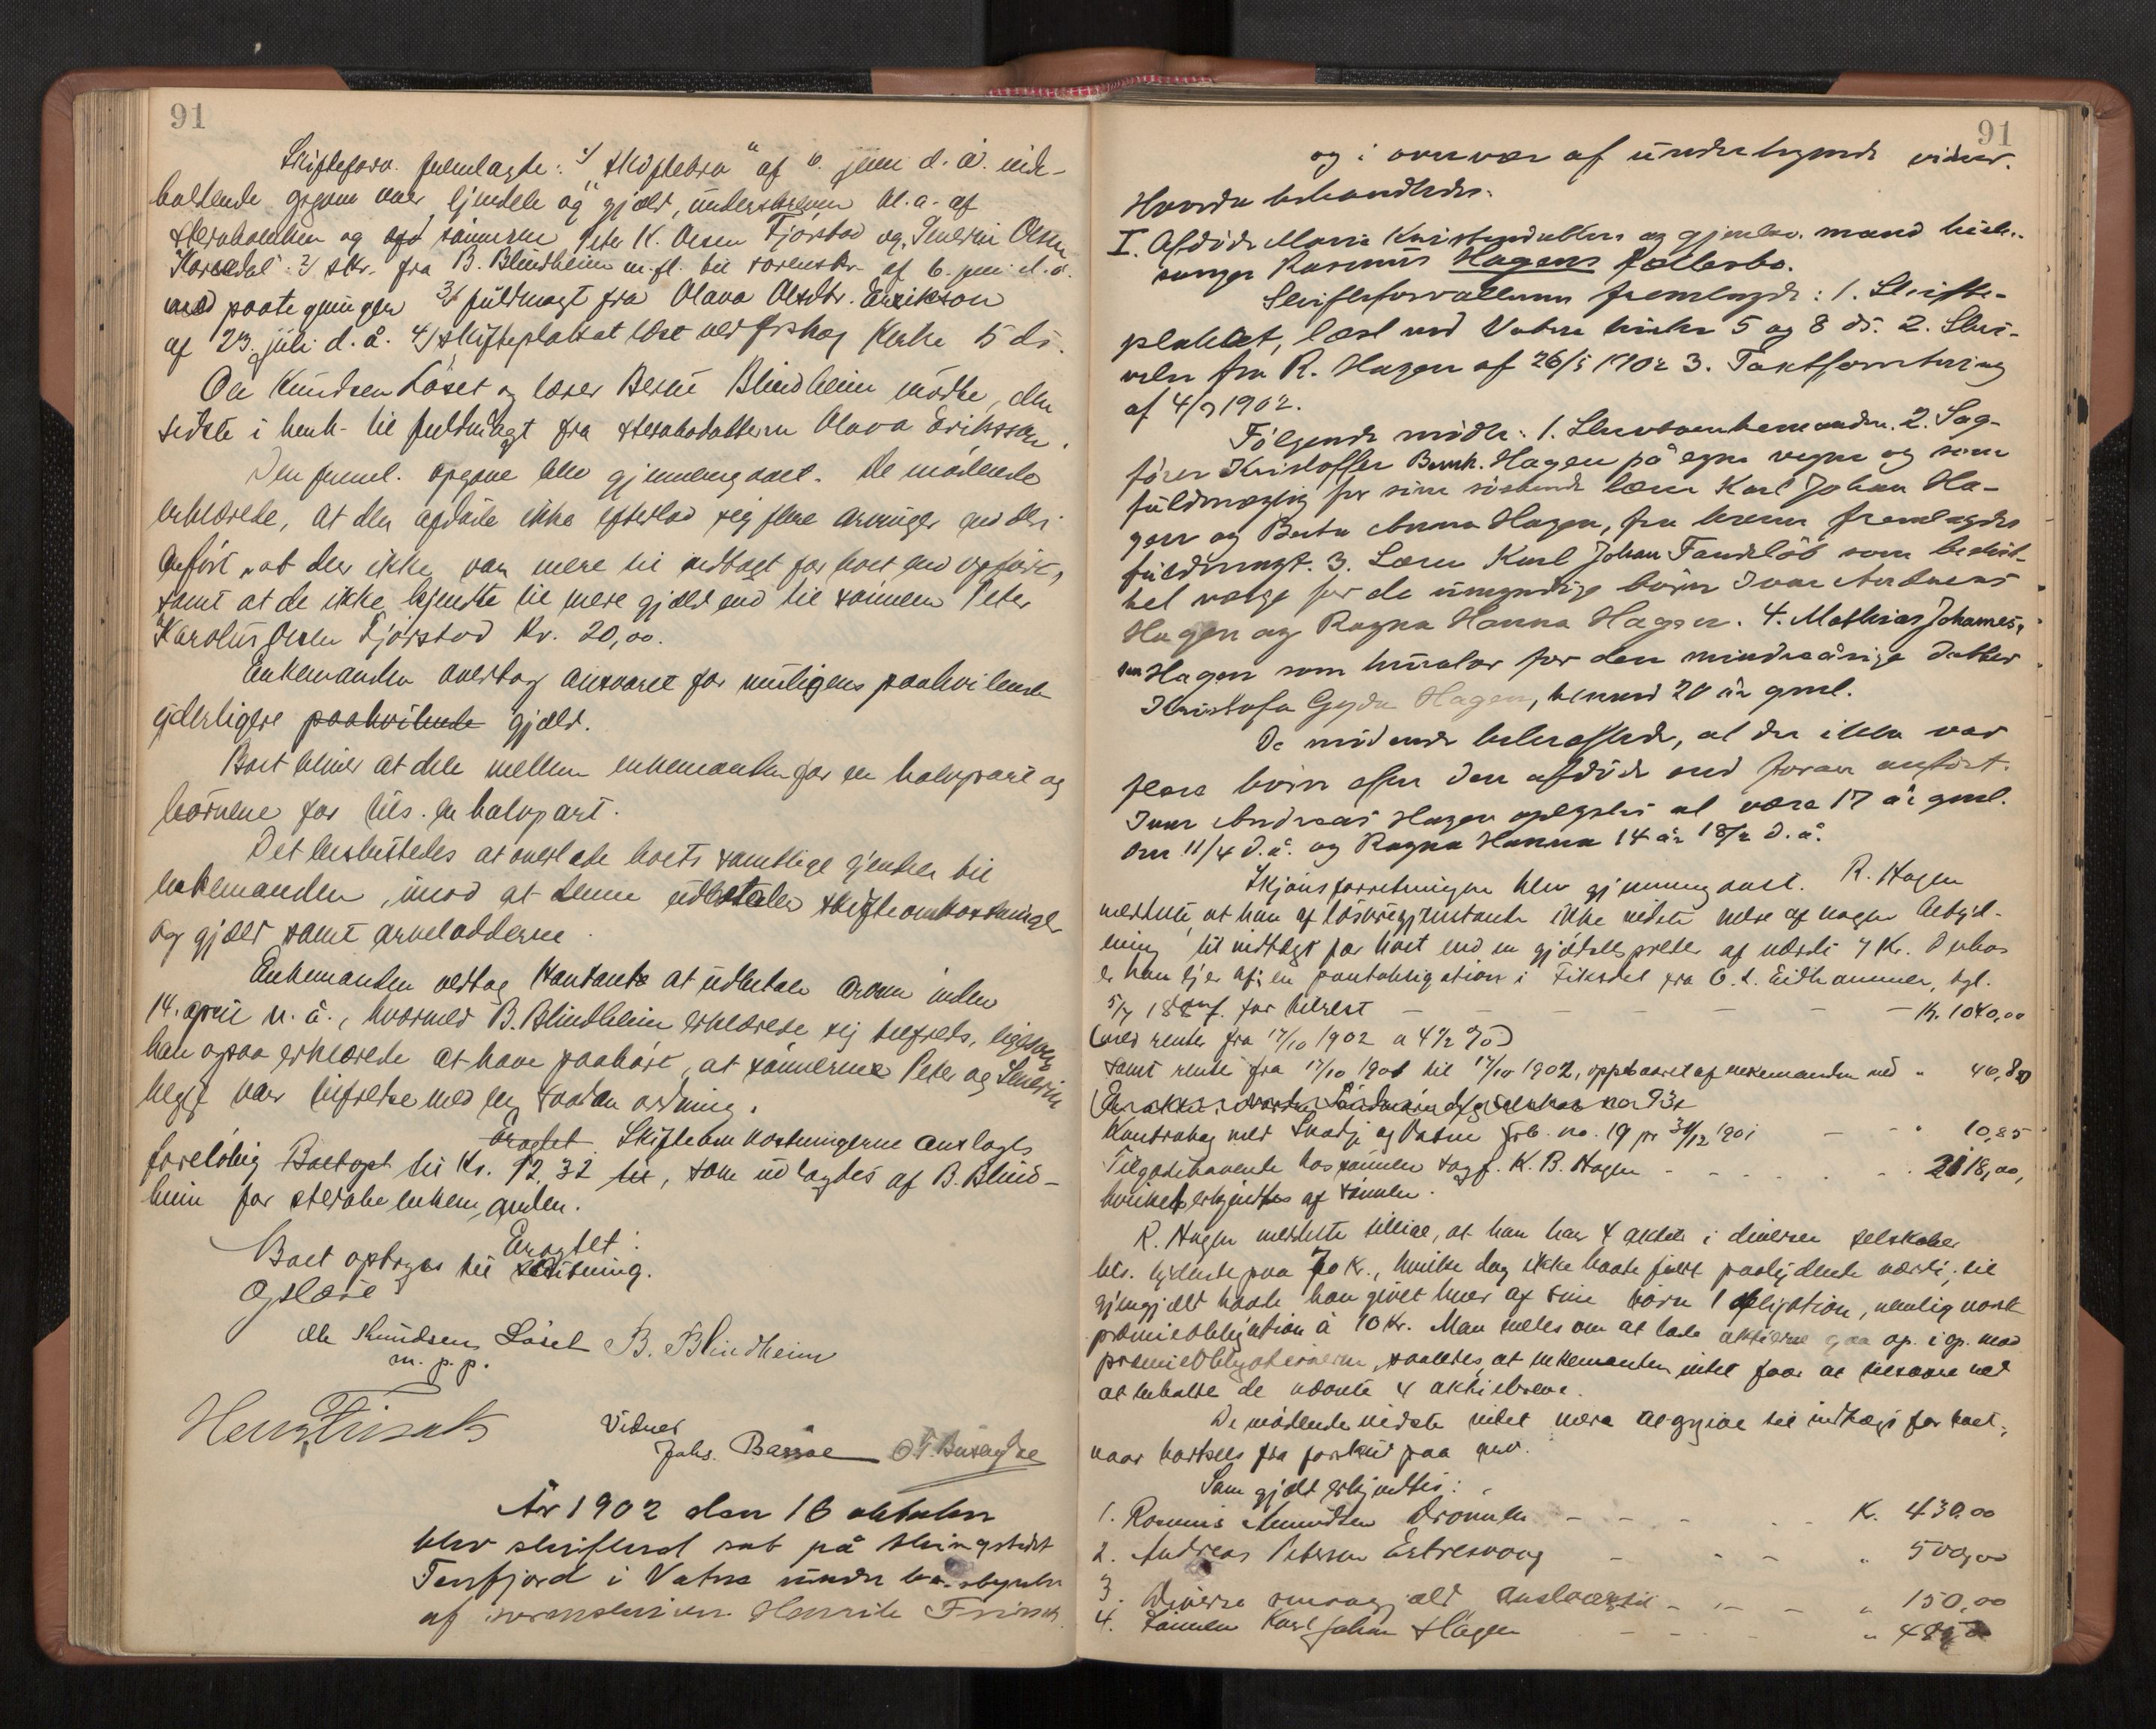 91
Skifteforv. fremlagte: 1) "Skiftebrev" af 6. juni d. å. inde-
holdende opgave over eiendele og gjæld, underskreven bl. a. af
sterbomanden og af sønnerne Peter K. Olsen Fjørstad og Severin Olsen
Korsedal. 2) Skr. fra B. Blindheim m. fl. til sorenskr. af 6. juni d. å.
med paategninger 3) fuldmagt fra Olava Olsdtr. Erikson
af 23. juli d. å. 4) Skifteplakat læst ved kirke 5 ds.
Ole Knudsen Løset og lærer Bernt Blindheim mødte, den
sidste i henh. til fuldmagt fra sterbodatteren Olava Eriksson.
Den freml. opgave blev gjennemgaaet. De mødende
erklærede, at den afdøde ikke efterlod sig flere arvinger end deri
anført, at der ikke var mere til indtægt for boet end opført,
samt at de ikke kjendte til mere gjæld end til sønnen Peter
Karolus Olsen Fjørstad Kr. 20,00.
Enkemanden overtog ansvaret for muligens paahvilende
yderligere paahvilende gjæld.
Boet bliver at dele mellem enkemanden for en halvpart og
børnene for tils. en halvpart.
Det besluttedes at overlade boets samtlige eiendele til
enkemanden, imod at denne udbetaler skifteomkostninger
og gjæld samt arvelodderne.
Enkemanden vedtog kontante at udbetale arven inden
14. april n. å., hvormed B. Blindheim erklærede sig tilfreds, ligesom
han ogsaa erklærede at have paahørt, at sønnerne Peter og Severin
begge var tilfredse med en saadan ordning.
Eragtet Skifteomkostningerne anslages
foreløbig Boet opt til Kr. 12,32 til, som udlagdes af B. Blind-
heim for sterboenkemanden.
Eragtet:
Boet optages til slutning.
Oplæst
Ole Knudsen Løset B. Blindheim
m. p. p.
Henr. Frisak
Vidner
Johs. Bassøe
År 1902 den 16 oktober
blev skifteret sat på thingstedet
Tenfjord i Vatne under bestyrelse
af sorenskriver Henrik Frisak
91
og i overvær af undertegnede vidner.
Hvorda behandledes.
I. Afdøde Marie Kristensdatters og gjenlev. mand kirke-
sanger Rasmus Hagens fællesbo.
Skifteforvalteren fremlagde: 1. Skifte-
plakat, læst ved Vatne kirke 5 og 8 ds. 2. Skri-
velse fra R. Hagen af 26/5 1902 3. Takstforretning
af 4/7 1902.
Følgende mødte: 1. Sterboenkemanden. 2. Sag-
fører Kristoffer Bernh. Hagen på egne vegne og som
fuldmægtig for sine søskende lærer Karl Johan Ha-
gen og Berta Anna Hagen, fra hvem fremlagdes
fuldmagt. 3. Lærer Karl Johan Tandeløb som beskik-
ket værge for de umyndige børn Ivar Andreas
Hagen og Ragna Hanna Hagen. 4. Mathias Johannes-
sen Hagen som kurator for den mindreårige datter
Kristofa Gyda Hagen, henved 20 år gml.
De mødende bekræftede, at der ikke var
flere børn efter den afdøde end foran anført.
Ivar Andreas Hagen oplystes at være 17 år gml.
den 11/4 d. å. og Ragna Hanna 14 år 18/2 d. å.
Skjønsforretningen blev gjennemgaaet. R. Hagen
meddelte, at han af løsøregjenstande ikke vidste mere af nogen betyd-
ning til indtægt for boet end en gjødselspreder af værdi 7 Kr. Derhos
er han eier af: en pantobligation i Fiksdal fra O. L. Eidhammer, tgl.
5/7 188 for tilrest — — — — — — Kr. 1040,00
(med renter fra 17/10 1902 a 4 1/2 %)
samt rente fra 17/10 1901 til 17/10 1902, oppebaaret af enkemanden med " 46,80
Kontrabog med Skodje og Vatne Sprb. no. 19 pr 31/12 1901 — — " 10,85
Tilgodehavende hos sønnen sagf. K. B. Hagen — — — 2118,00,
hvilket erkjendtes af sønnen.
R. Hagen meddelte tillige, at han har 4 aktier i diverse selskaber
tils. lydende paa 70 Kr., hvilke dog ikke havde fuldt paalydende værdi; til
gjengjæld havde han givet hver af sine børn 1 obligation, nemlig norsk
præmieobligation à 10 Kr. Man enedes om at lade aktierne gaa op i op. mod
præmieobligationerne, saaledes, at enkemanden intet faar at tilsvare ved
at beholde de nævnte 4 aktiebreve.
De mødende vidste intet mere at opgive til indtægt for boet,
naar bortsees fra forskud paa arv.
Som gjæld erkjendtes:
1. Rasmus Amundsen Dronnen — — — — Kr. 430,00
2. Andreas Petersen Estresvaag — — — " 500,00
3. Diverse smaagjæld anslaaes til — — — " 150,00
4. Sønnen Karl Johan Hagen — — — "